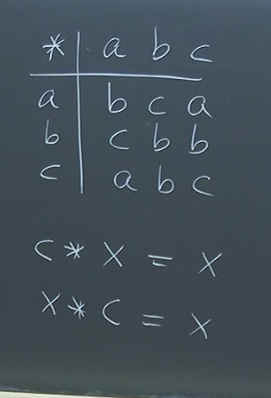 * a b c
a b c a
b c b b
c a b c
c * x = x
x * c = x